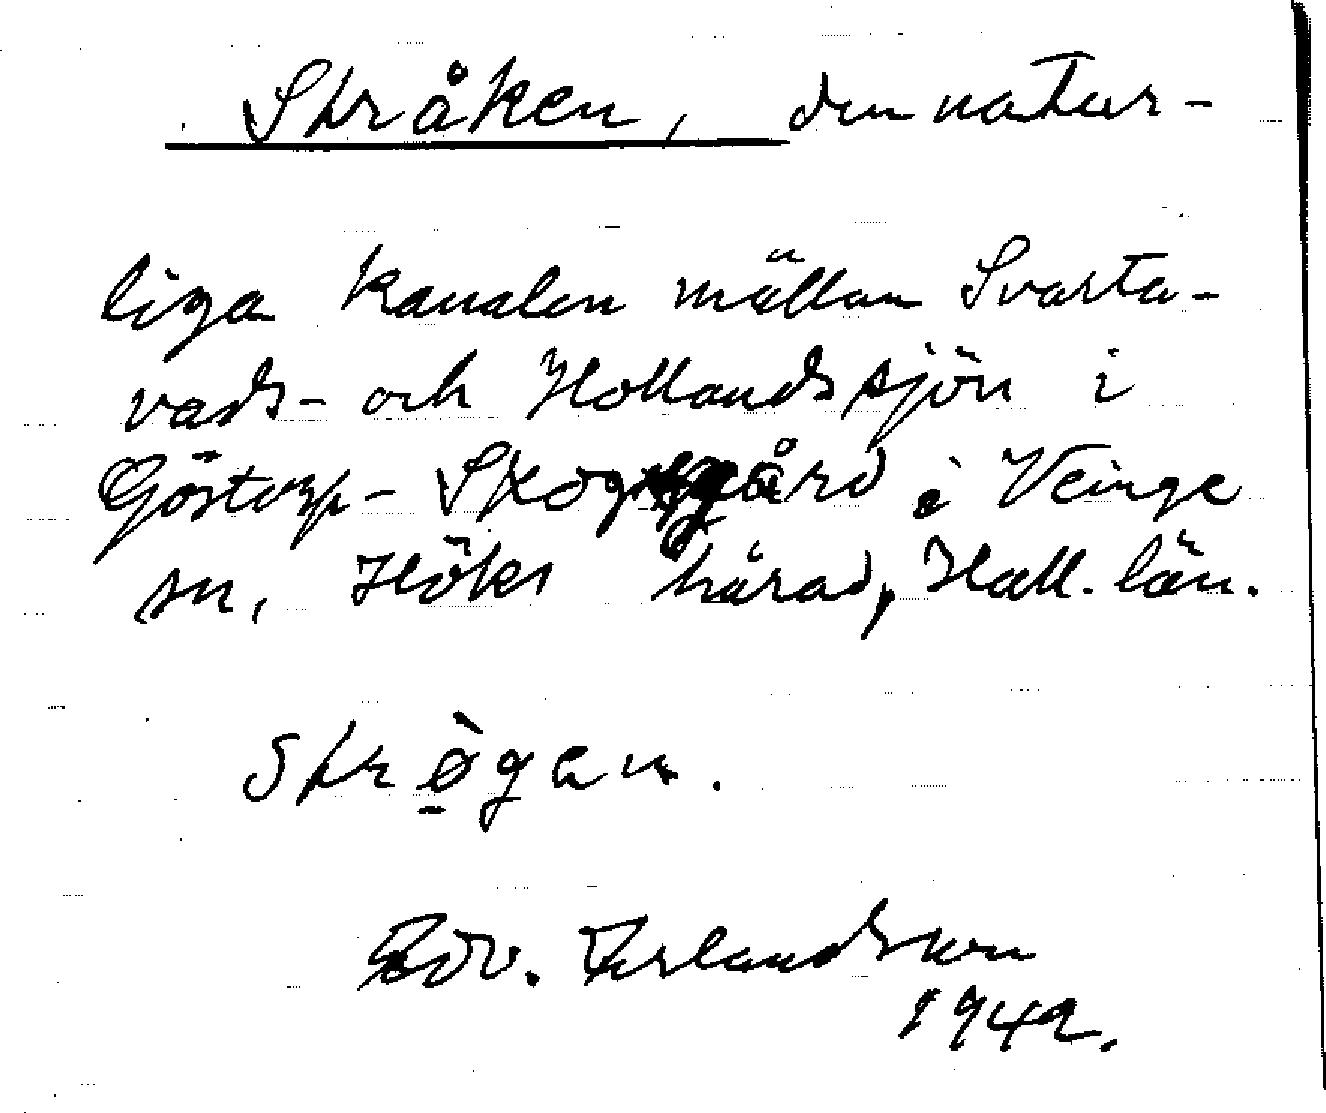 Stråken, den natur-
liga kanalen mällan Svarta-
vads- och Hollandssjön i
Göstorp- Skogsgård i Veinge
sn, Höks härad, Hall. län.
Strògen.
Edv. Erlandsson
1942.